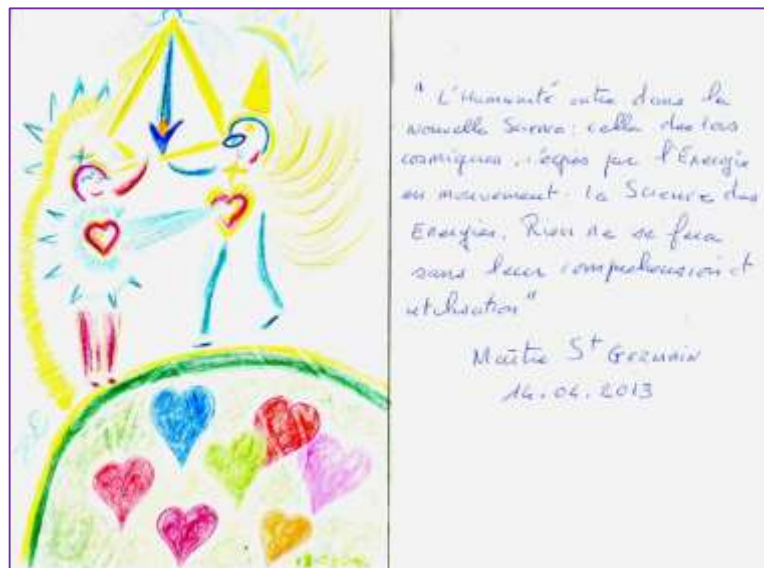 " L'Humanité entre dans la
nouvelle Science : celle des lois
cosmiques, régies par l'Énergie
en mouvement. La Science des
Énergies. Rien ne se fera
sans leur compréhension et
utilisation "
Maître St GERMAIN
14.04.2013